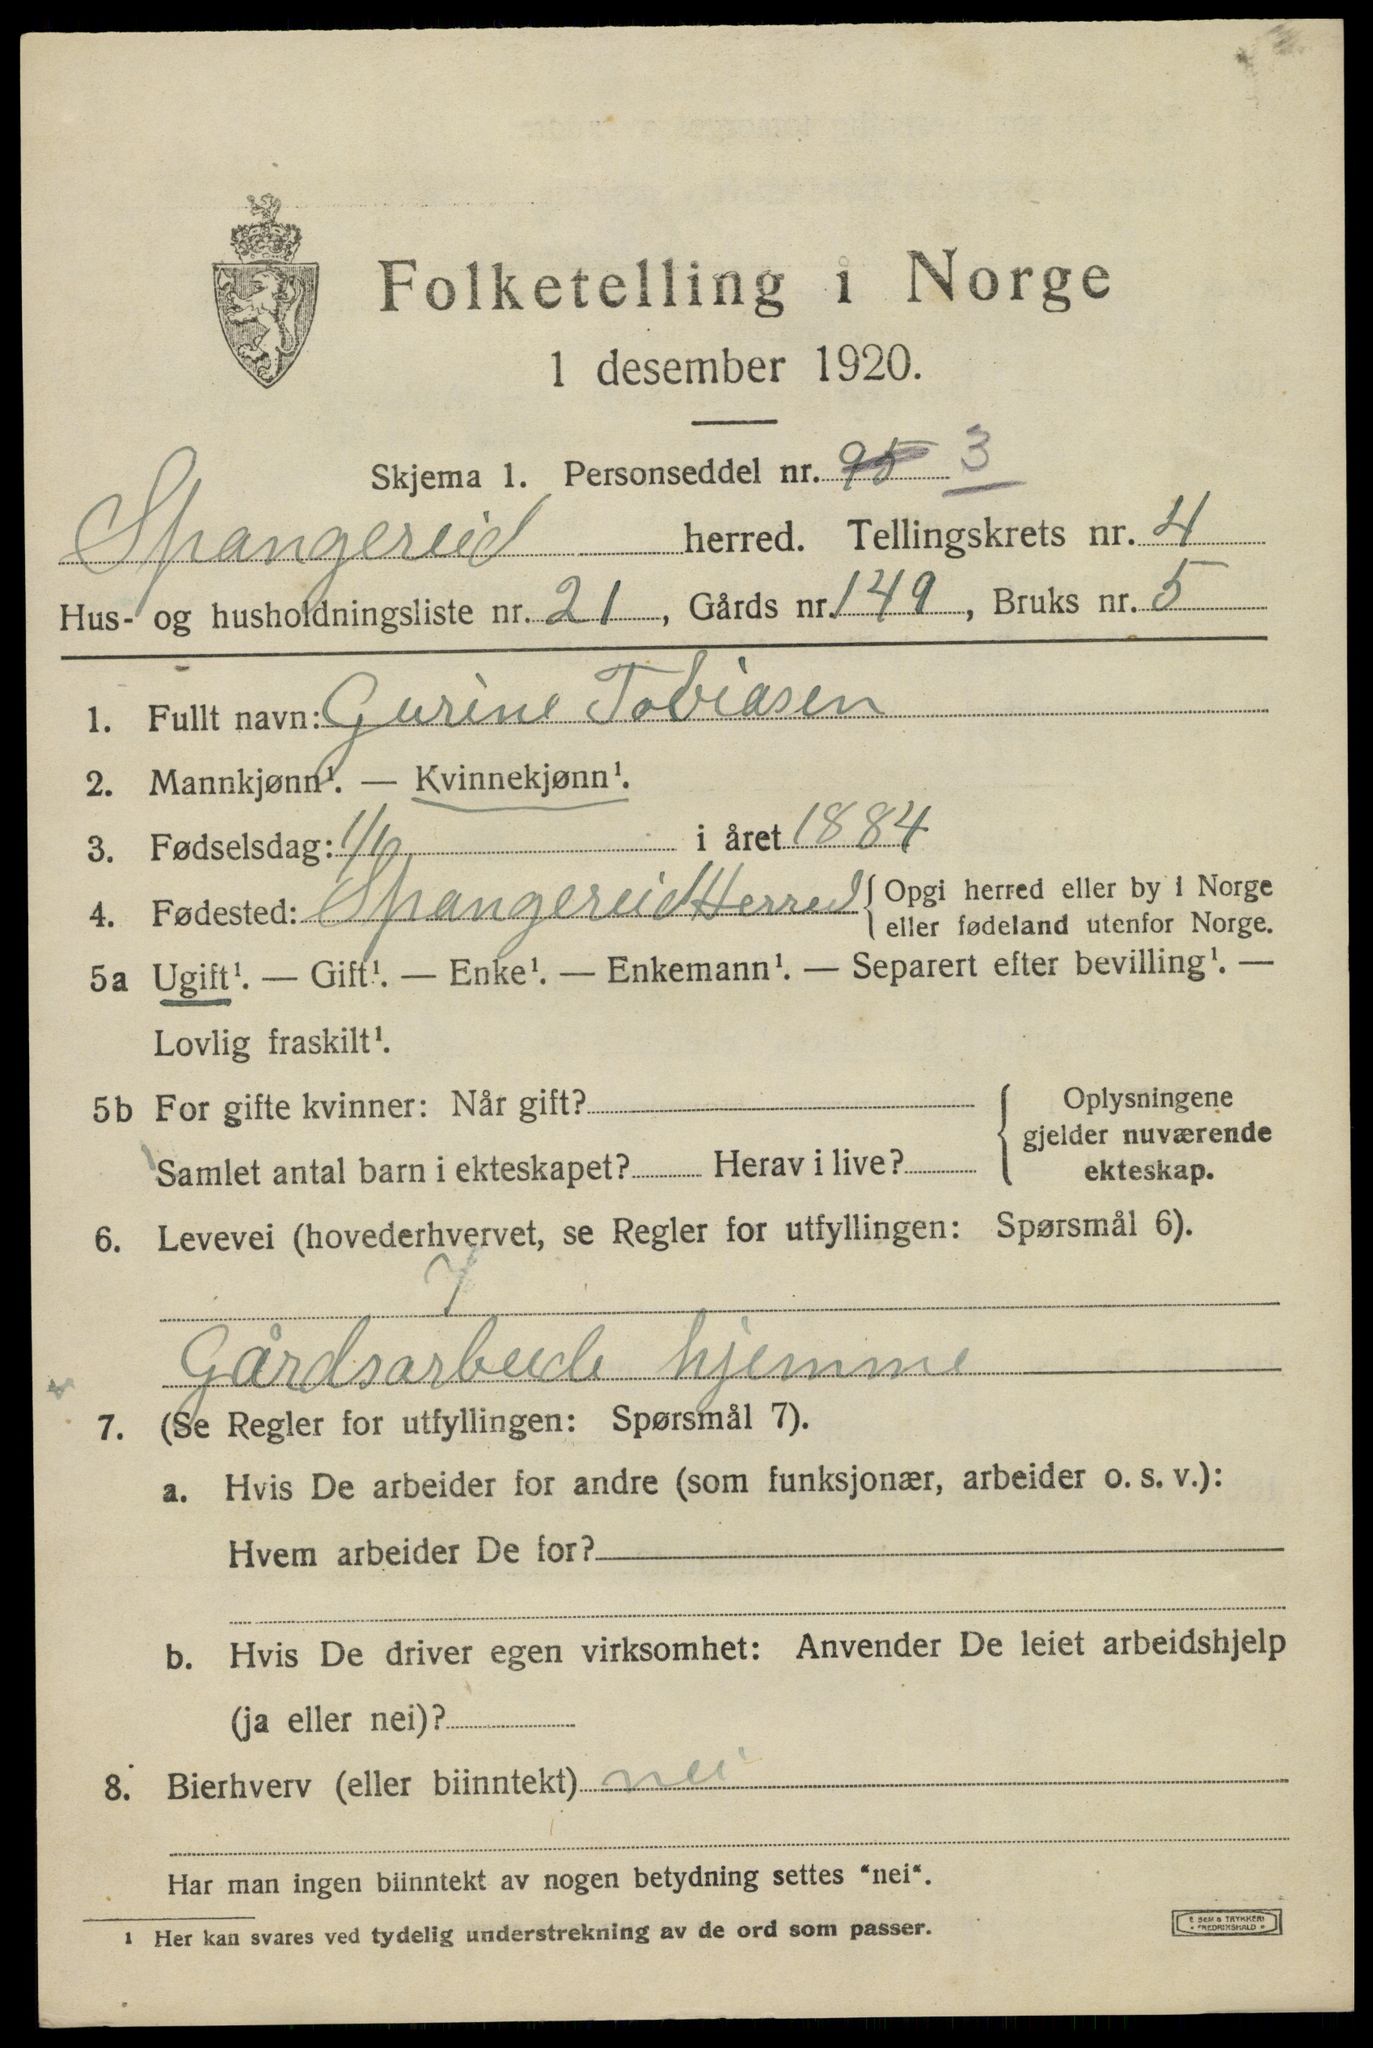 Folketelling i Norge
1 desember 1920.
Skjema 1. Personseddel nr. 95 3
Spangereid herred. Tellingskrets nr. 4
Hus- og husholdningsliste nr. 21, Gårds nr. 149, Bruks nr. 5
1. Fullt navn: Gurine Tobiasen
2. Mannkjønn¹. — Kvinnekjønn¹.
3. Fødselsdag: 1/6 i året 1884
4. Fødested: Spangereid Herred { Opgi herred eller by i Norge
eller fødeland utenfor Norge.
5a Ugift¹. — Gift¹. — Enke¹. — Enkemann¹. — Separert efter bevilling¹. —
Lovlig fraskilt¹.
5b For gifte kvinner: Når gift?
Samlet antal barn i ekteskapet? Herav i live?
{ Oplysningene
gjelder nuværende
ekteskap.
6. Levevei (hovederhvervet, se Regler for utfyllingen: Spørsmål 6).
Gårdsarbeide hjemme
7. (Se Regler for utfyllingen: Spørsmål 7).
a. Hvis De arbeider for andre (som funksjonær, arbeider o. s. v.):
Hvem arbeider De for?
b. Hvis De driver egen virksomhet: Anvender De leiet arbeidshjelp
(ja eller nei)?
8. Bierhverv (eller biinntekt) nei
Har man ingen biinntekt av nogen betydning settes "nei".
1 Her kan svares ved tydelig understrekning av de ord som passer.
E SEM S TRYKKERI
FREDRIKSHALD